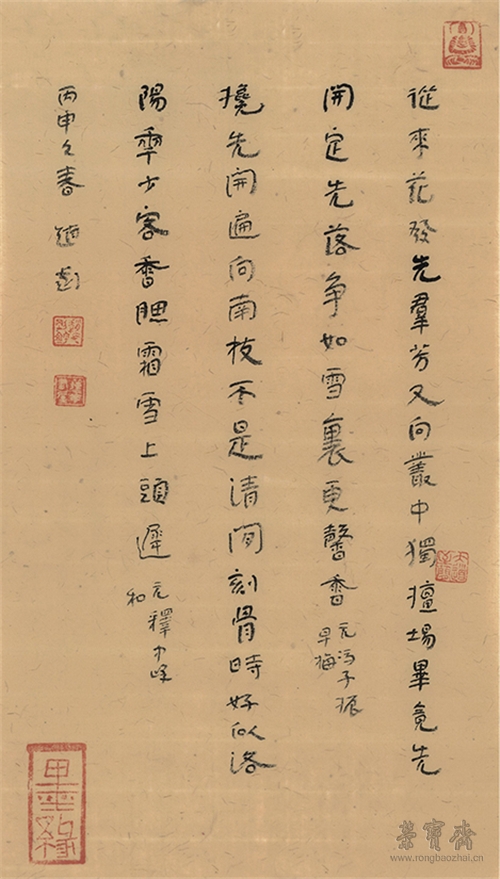 從來花發先羣芳又向叢中獨擅場畢竟先
開定先落争如雪裏更馨香
元冯子振
早梅
攙先開遍向南枝不是清间刻骨時好似洛
陽秊少客香腮霜雪上頭遲
元釋中峰
和
丙申之春
墨緣
榮寶齋
www.rongbaozhai.cn